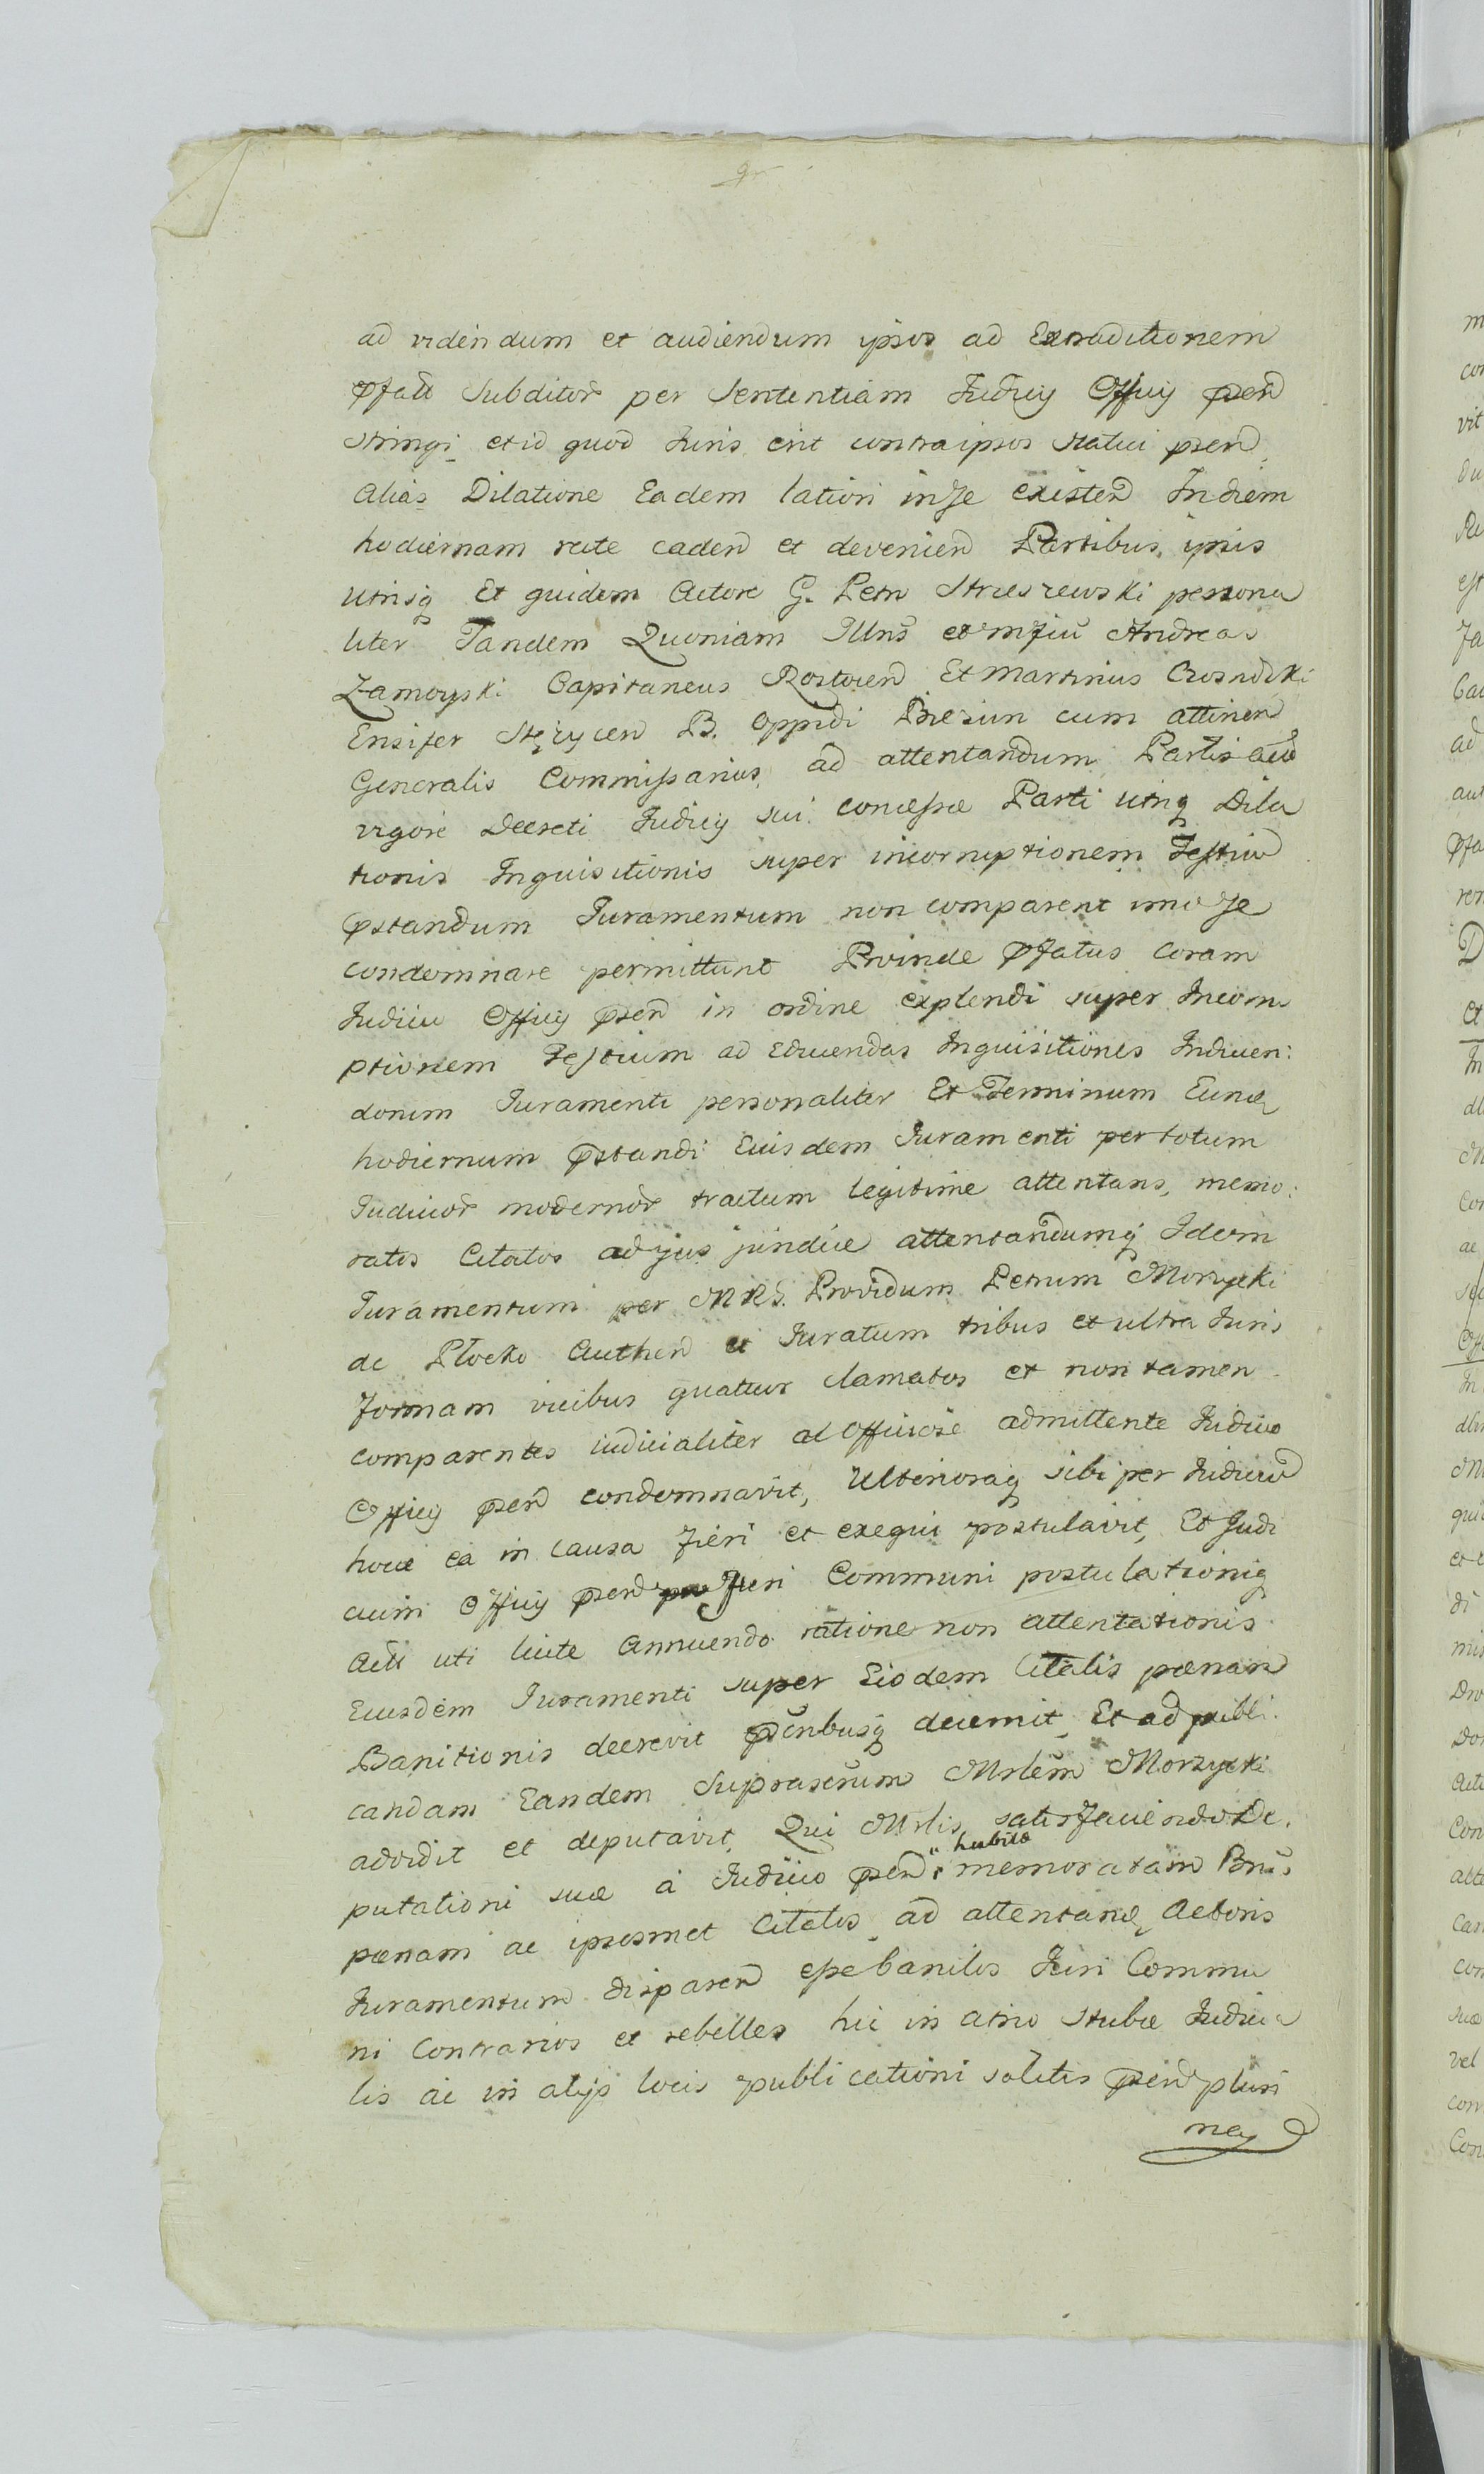 9
ad videndum et audiendum ipsos ad Extraditionem
pfati Subditor per Sententiam Judicij Officij psen
stringi et id quod Juris erit contra ipsos statui psen
alias Dilatione Eadem latiori in se existen In diem
hodiernam rite caden et devenien Partibus ipsis
utrisq Et quidem Actore G. Petro Strzeszewski persona
liter Tandem Quoniam Illris et Mfius Andreas
Zamoyski Capitaneus Rostocien Et Martinus Crosnowski
Ensifer Stężycen B. Oppidi Biezun cum attinen
Generalis Commissarius ad attentandum Partis
vigore Decreti Judicij sui concessæ Parti utriq Dila
tionis Inquisitionis super incorruptionem Testium
pstandum Juramentum non comparent imo se
condemnare permittunt Proinde pfatus coram
Judicio Officij psen in ordine explendi super Incorru
ptionem Testium ad Educendas Inquisitiones Inducen:
dorum Juramenti personaliter Et Terminum Eund
hodiernum pstandi Eiusdem Juramenti per totum
Judicior modernor tractum legitime attentans, memo:
ratos Citatos ad jus jurid attentandumq Idem
Juramentum per MRG. Providum Petrum Morzycki
de Plocko Authen et Juratum tribus et ultra Juris
formam vicibus quatuor clamatos et non tamen
comparentes iudicialiter ac officiose admittente Judicio
Officij psen condemnavit, Ulterioraq sibi per Judicium
hocce ea in causa fieri et exequi postulavit, Et Judi
cium Officij psen Juri Communi postulationiq
Acti uti licite Annuendo ratione non attentationis
Eiusdem Juramenti super Eisdem Citatis pœnam
Banitionis decrevit psentibusq decernit Et ad publi
candam Eandem Suprascrum Mrlem Morzycki
addidit et deputavit, Qui Mrlis satisfaciendo De
putationi suæ a Judicio psen " habita memoratam Bnis
pœnam ac ipsosmet Citatos ad attentand Actoris
Juramentum disparen esse banitos Juri Commu
ni Contrarios et rebelles hic in atrio stubæ Judicia
lis ac in alijs locis publicationi solitis psen plurimq